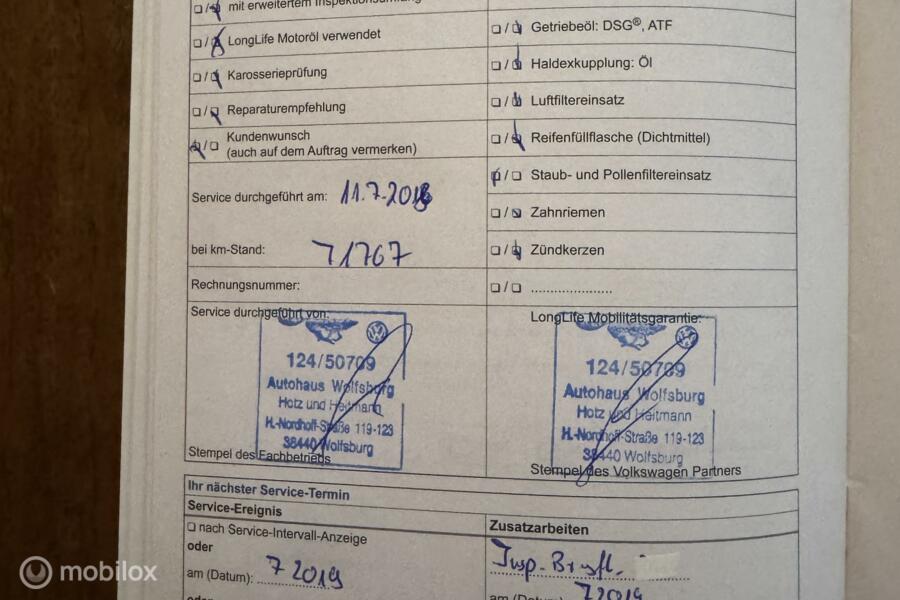 mit erweitertem Inspektionsumfang
LongLife Motoröl verwendet
Karosserieprüfung
Reparaturempfehlung
Kundenwunsch
(auch auf dem Auftrag vermerken)
Service durchgeführt am: 11.7.2018
bei km-Stand: 71767
Rechnungsnummer:
Service durchgeführt von:
124/50709
Autohaus Wolfsburg
Hotz und Heitmann
H.-Nordhoff-Straße 119-123
38440 Wolfsburg
Stempel des Fachbetriebs
Getriebeöl: DSG®, ATF
Haldexkupplung: Öl
Luftfiltereinsatz
Reifenfüllflasche (Dichtmittel)
Staub- und Pollenfiltereinsatz
Zahnriemen
Zündkerzen
.....................
LongLife Mobilitätsgarantie:
124/50709
Autohaus Wolfsburg
Hotz und Heitmann
H.-Nordhoff-Straße 119-123
38440 Wolfsburg
Stempel des Volkswagen Partners
Ihr nächster Service-Termin
Service-Ereignis
nach Service-Intervall-Anzeige
oder
am (Datum): 7 2019
oder
Zusatzarbeiten
Insp.
am (Datum): 7 2019
mobilox